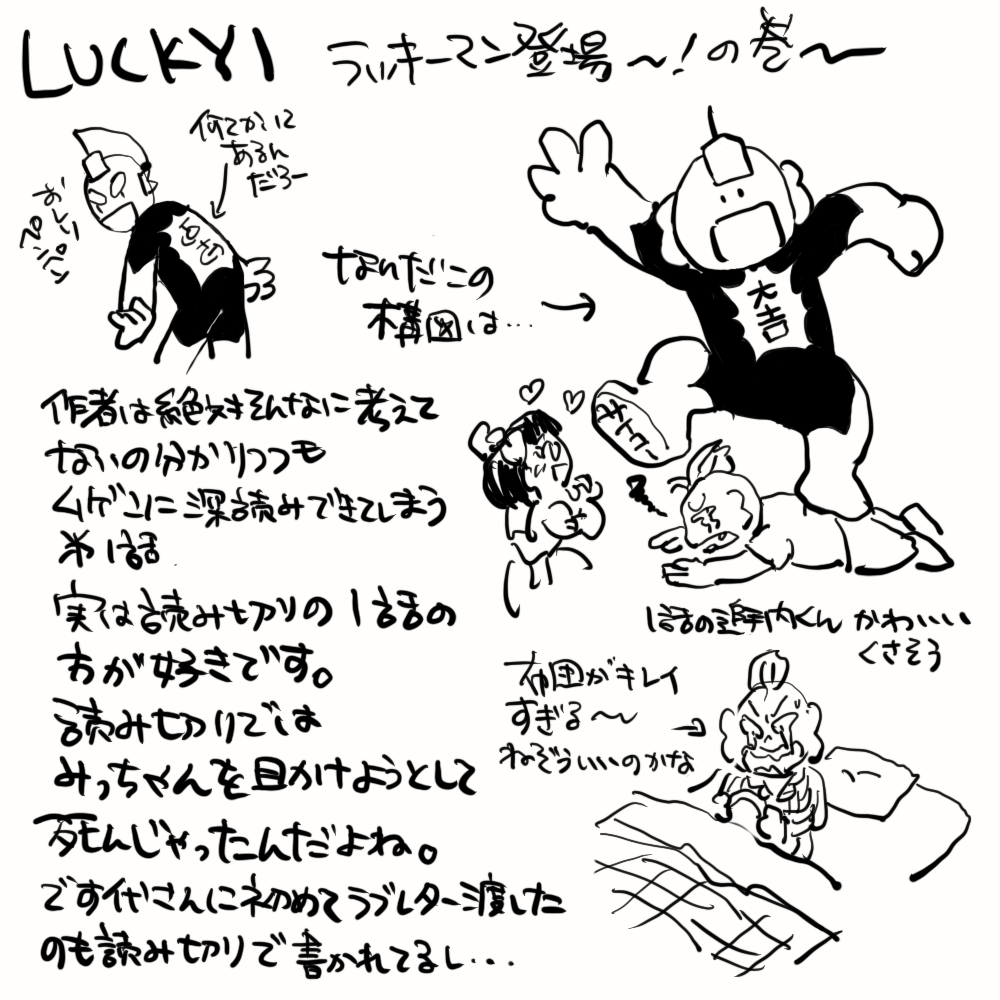 LUCKY1 ラッキーマン登場〜!の巻〜
何てかいに
あるん
だろー
おしり
ペンペン
なんだこの
構図は…
大吉
作者は絶対そんなに考えて
ないの分かりつつも
ムゲンに深読みできてしまう
㐧1話
実は読み切りの1話の
方が好きです。
読み切りでは
みっちゃんを助けようとして
死んじゃったんだよね。
です代さんに初めてラブレター渡した
のも読み切りで書かれてるし…
1話の追手内くんかわいい
くさそう
布団がキレイ
すぎる〜
ねぞういいのかな